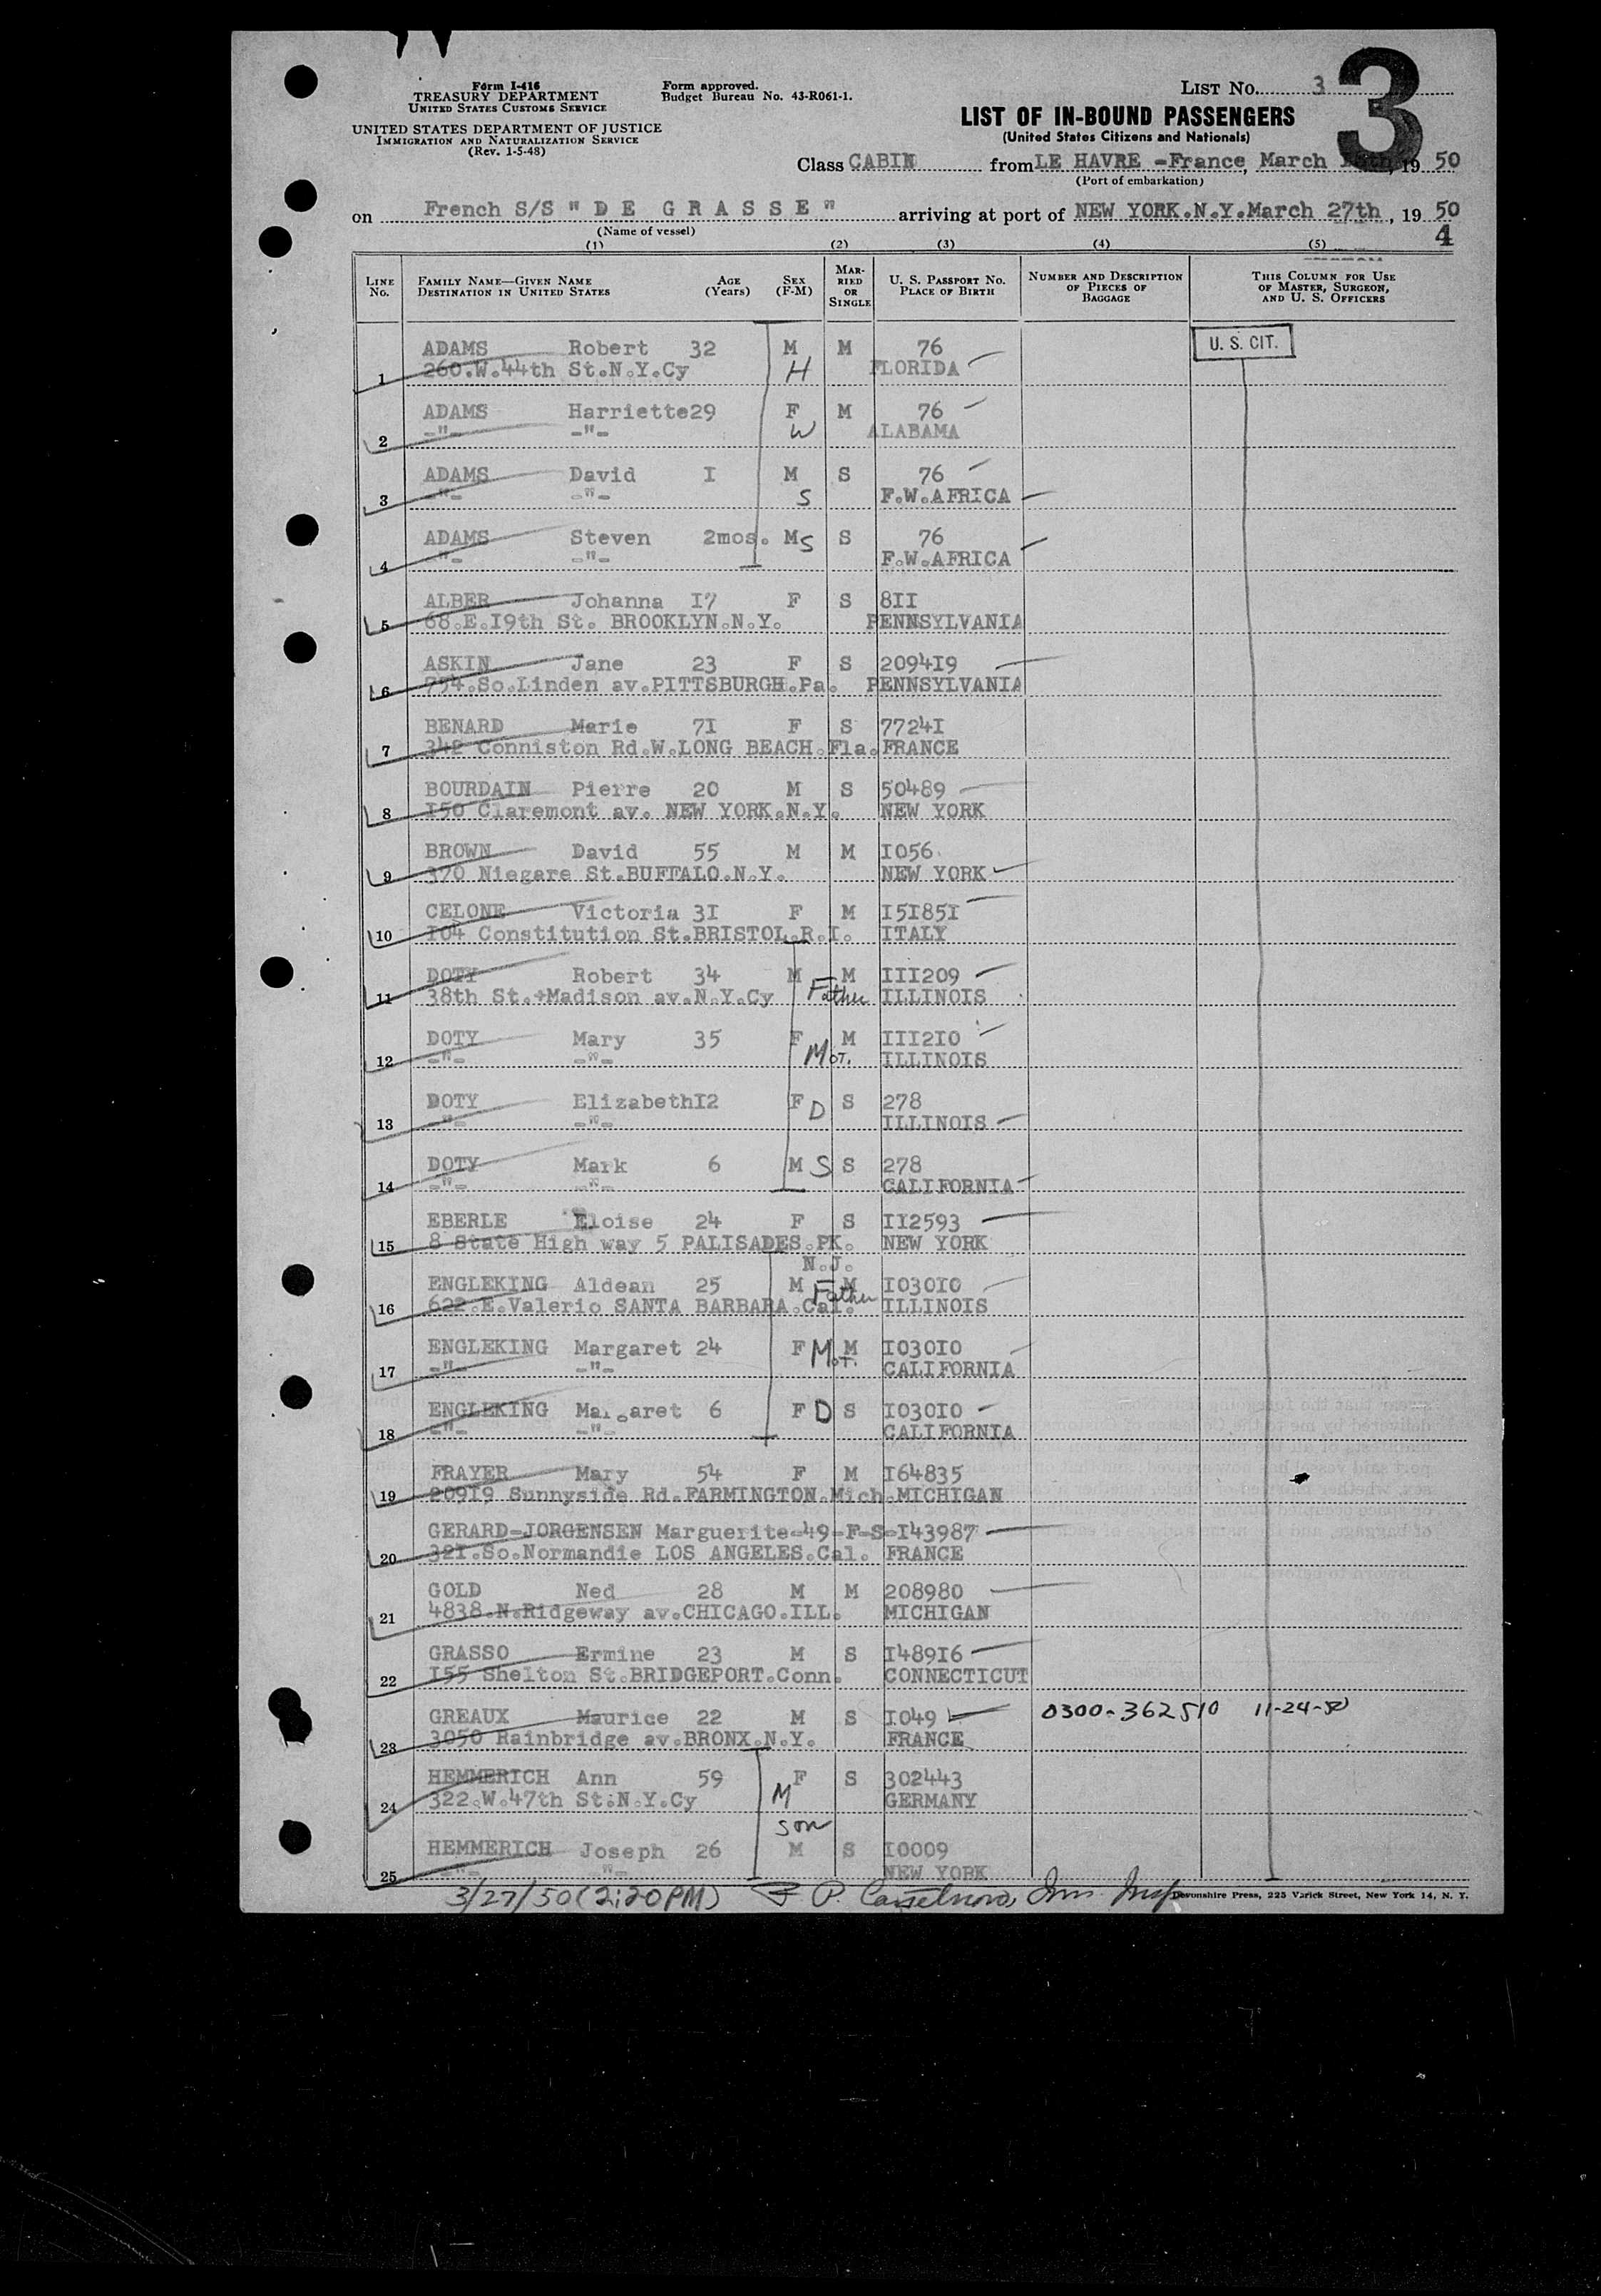 3
Form I-416
TREASURY DEPARTMENT
UNITED STATES CUSTOMS SERVICE
UNITED STATES DEPARTMENT OF JUSTICE
IMMIGRATION AND NATURALIZATION SERVICE
(Rev. 1-5-48)
Form approved.
Budget Bureau No. 43-R061-1.
LIST No. 3
LIST OF IN-BOUND PASSENGERS
(United States Citizens and Nationals)
Class CABIN from LE HAVRE -France, March , 19 50
(Port of embarkation)
on French S/S " D E G R A S S E " arriving at port of NEW YORK.N.Y.March 27th, 19 50
(Name of vessel)
4
(1) (2) (3) (4) (5)
LINE No. FAMILY NAME—GIVEN NAME DESTINATION IN UNITED STATES AGE (Years) SEX (F-M) MARRIED OR SINGLE U. S. PASSPORT NO. PLACE OF BIRTH NUMBER AND DESCRIPTION OF PIECES OF BAGGAGE THIS COLUMN FOR USE OF MASTER, SURGEON, AND U. S. OFFICERS
ADAMS Robert 32 M M 76 U. S. CIT.
1 260.W.44th St.N.Y.Cy H FLORIDA
ADAMS Harriette29 F M 76
2 -"- -"- W ALABAMA
ADAMS David I M S 76
3 -"- -"- S F.W.AFRICA
ADAMS Steven 2mos. M S S 76
4 -"- -"- F.W.AFRICA
ALBER Johanna I7 F S 8II
5 68.E.I9th St. BROOKLYN.N.Y. PENNSYLVANIA
ASKIN Jane 23 F S 2094I9
6 934.So.Linden av.PITTSBURGH.Pa. PENNSYLVANIA
BENARD Marie 7I F S 7724I
7 342 Conniston Rd.W.LONG BEACH.Fla. FRANCE
BOURDAIN Pierre 20 M S 50489
8 I50 Claremont av. NEW YORK.N.Y. NEW YORK
BROWN David 55 M M I056
9 370 Niegare St.BUFFALO.N.Y. NEW YORK
CELONE Victoria 3I F M I5I85I
10 I04 Constitution St.BRISTOL.R.I. ITALY
DOTY Robert 34 M M III209
11 38th St.+Madison av.N.Y.Cy Father ILLINOIS
DOTY Mary 35 F M III2I0
12 -"- -"- MOT. ILLINOIS
DOTY ElizabethI2 F D S 278
13 -"- -"- ILLINOIS
DOTY Mark 6 M S S 278
14 -"- -"- CALIFORNIA
EBERLE Eloise 24 F S II2593
15 8 State High way 5 PALISADES.PK. NEW YORK
N.J.
ENGLEKING Aldean 25 M M I030I0
16 622.E.Valerio SANTA BARBARA.Cal. Father ILLINOIS
ENGLEKING Margaret 24 F MOT. M I030I0
17 -"- -"- CALIFORNIA
ENGLEKING Margaret 6 F D S I030I0
18 -"- -"- CALIFORNIA
FRAYER Mary 54 F M I64835
19 20919 Sunnyside Rd.FARMINGTON.Mich. MICHIGAN
GERARD-JORGENSEN Marguerite-49-F-S-I43987
20 32I.So.Normandie LOS ANGELES.Cal. FRANCE
GOLD Ned 28 M M 208980
21 4838.N.Ridgeway av.CHICAGO.ILL. MICHIGAN
GRASSO Ermine 23 M S I489I6
22 I55 Shelton St.BRIDGEPORT.Conn. CONNECTICUT
GREAUX Maurice 22 M S I049 0300-362510 11-24-50
23 3050 Rainbridge av.BRONX.N.Y. FRANCE
HEMMERICH Ann 59 F S 302443
24 322.W.47th St.N.Y.Cy M GERMANY
son
HEMMERICH Joseph 26 M S I0009
25 -"- -"- NEW YORK
3/27/50 (2:20PM) P.
Devonshire Press, 225 Varick Street, New York 14, N. Y.